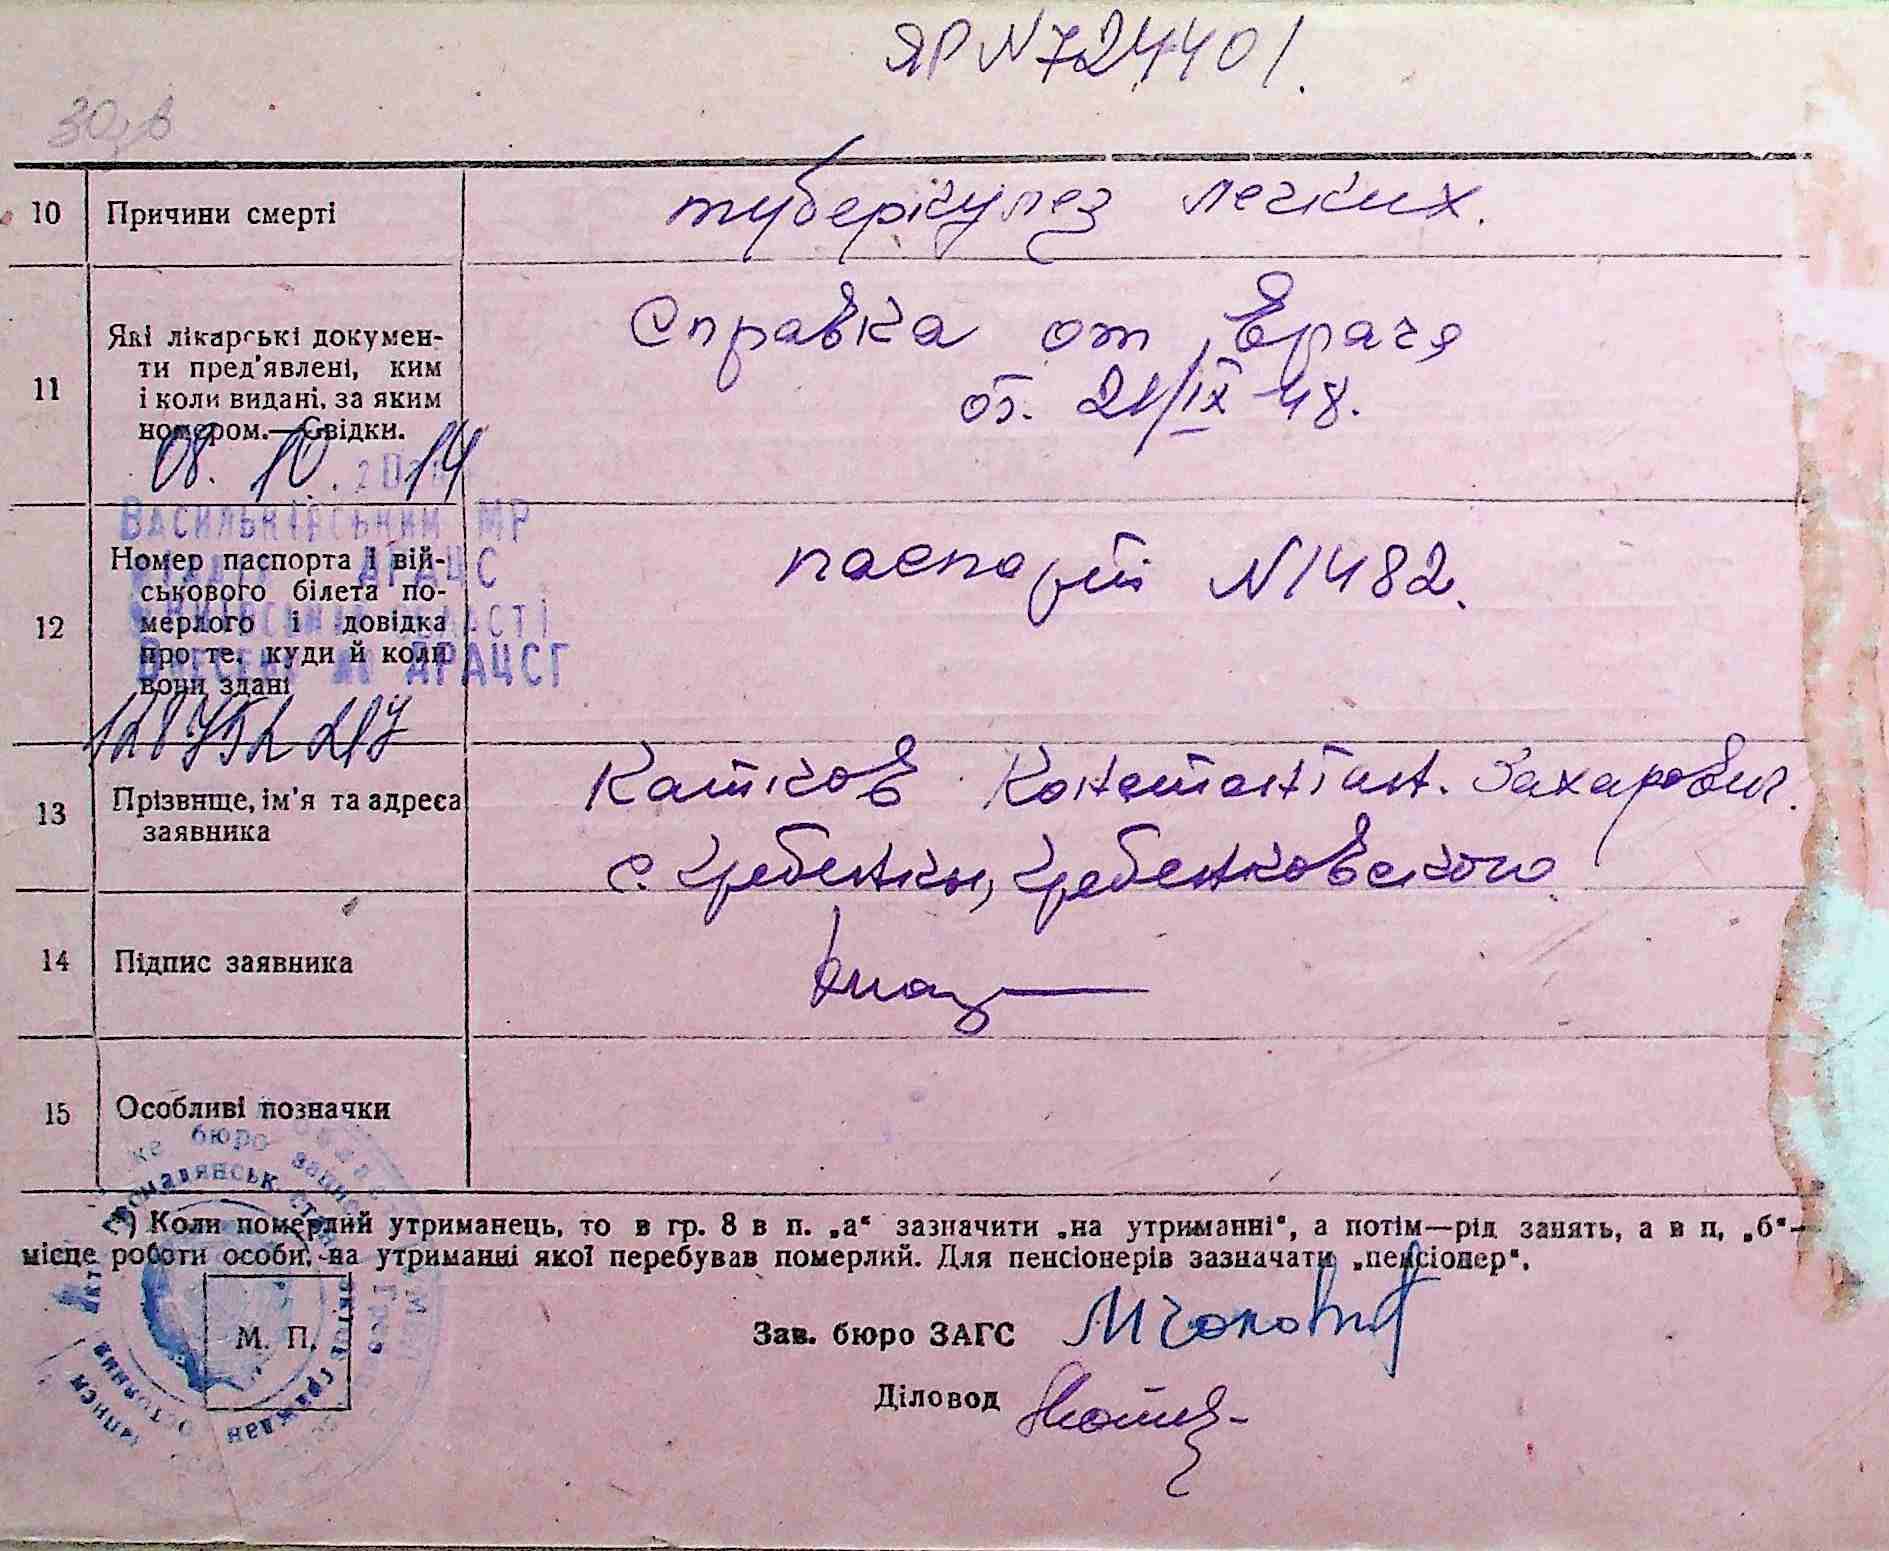 ЯР N 724401.
30,в
10 Причини смерті туберкулез легких.
11 Які лікарські докумен-
ти пред'явлені, ким
і коли видані, за яким
номером.—Свідки.
Справка от Врача
от. 21/IX 48.
08. 10. 14
Васильківський МР
ДРАЦС
12 Номер паспорта і вій-
ськового білета по-
мерлого і довідка
про те, куди й коли
вони здані
паспорт N 1482.
ДРАЦСГ
13 Прізвище, ім'я та адреса
заявника
Катков Константин. Захарович.
с. Гребенки, Гребенковского
14 Підпис заявника
15 Особливі позначки
*) Коли померлий утриманець, то в гр. 8 в п. „а“ зазначити „на утриманні“, а потім—рід занять, а в п, „б“—
місце роботи особи, на утриманні якої перебував померлий. Для пенсіонерів зазначати „пенсіонер“.
М. П.
Зав. бюро ЗАГС
Діловод
бюро
громадянськ.